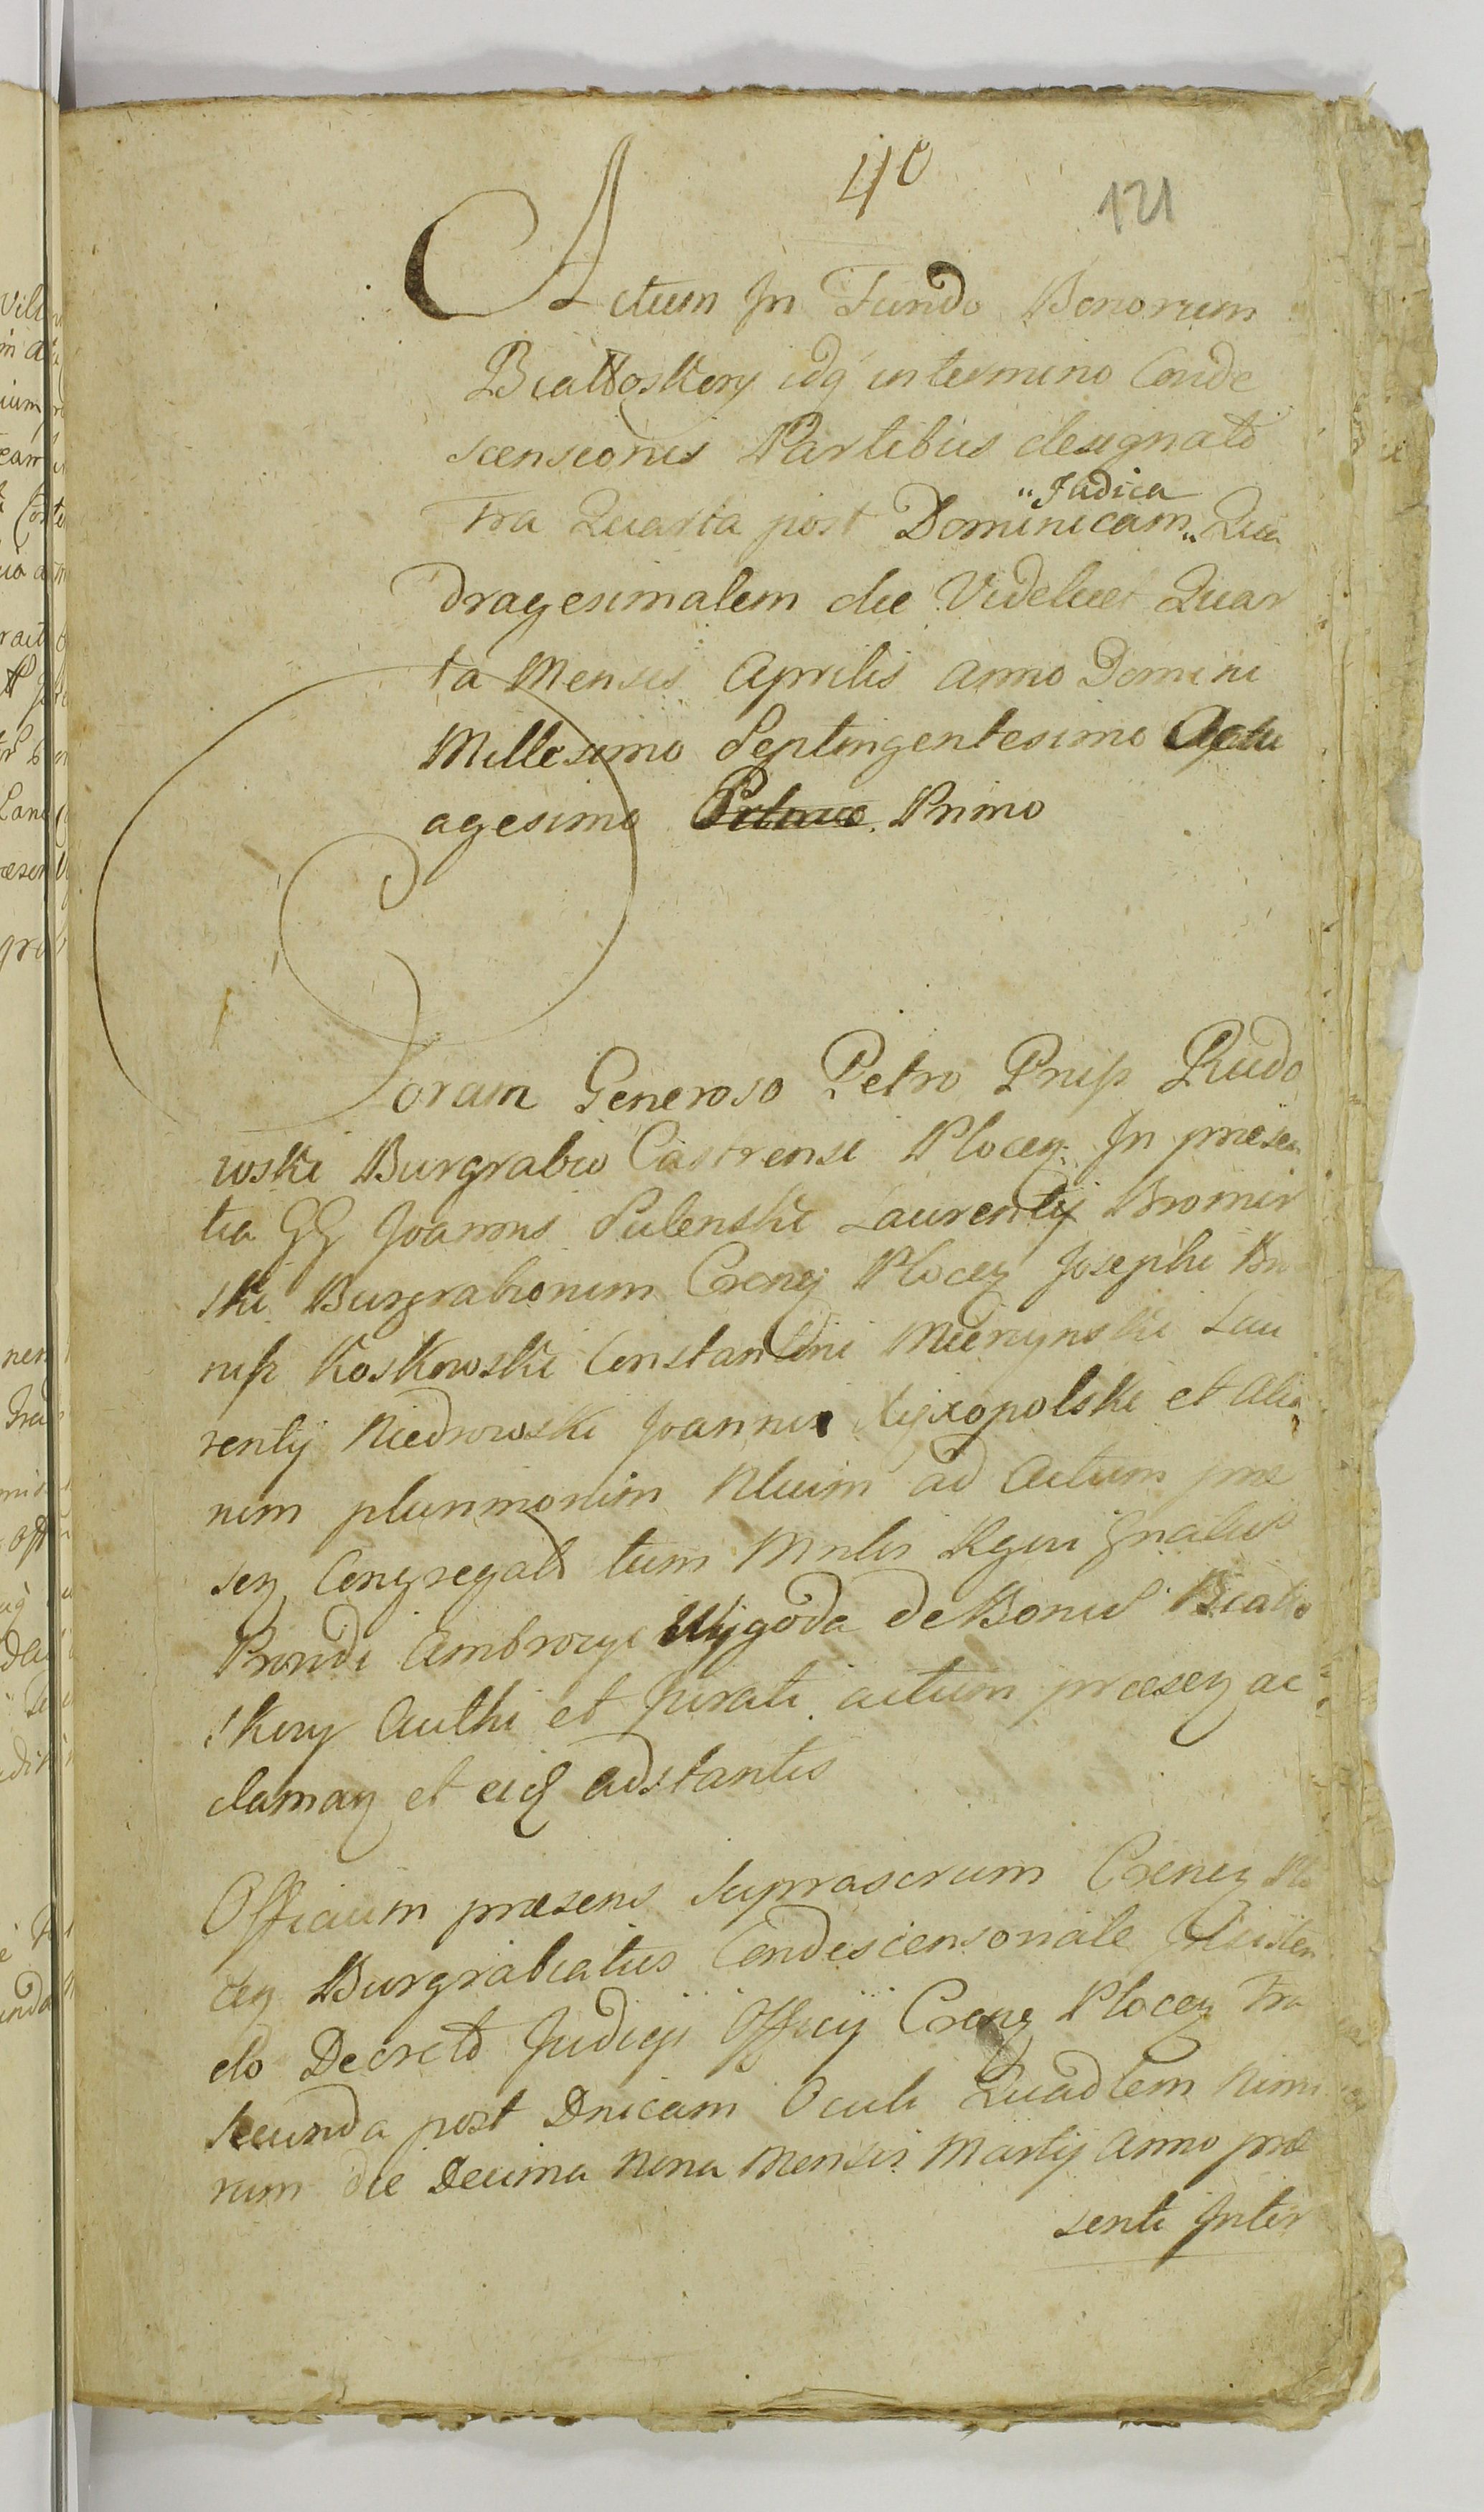 40
121
Actum In Fundo Bonorum
Białłoskory idq in termino Conde
scensionis Partibus designato
Fra Quarta post Dominicam „Judica„ Qua
dragesimalem die Videlicet Quar
ta Mensis Aprilis Anno Domini
Millesimo Septingentesimo Octu
agesimo Primo
Coram Generoso Petro Prus Rudo
wski Burgrabio Castrensi Plocen In praesen
tia GG Joannis Sulenski Laurentij Bromir
ski Burgrabiorum Crenz Plocen Josephi
Koskowski Constantini Mierzynski Lau
rentij Niedrowski Joannis et Alio
rum plurimorum Nlium ad Actum prae
sen Congregato tum Mnlis Rgni Gnalis
Provdi Ambrozy Wygoda de Bonis Biało
skory Authi et Jurati actum praesen ac
claman et eid adstantis
Officium praesens suprascrum Crenen Plo
cen Burgrabiatus Condescensoriale Insisten
do Decreto Judicij Officij Crenz Plocen Fra
secunda post Dnicam Oculi Quadlem nimi
rum die Decima nona Mensis Martij Anno prae
senti Inter